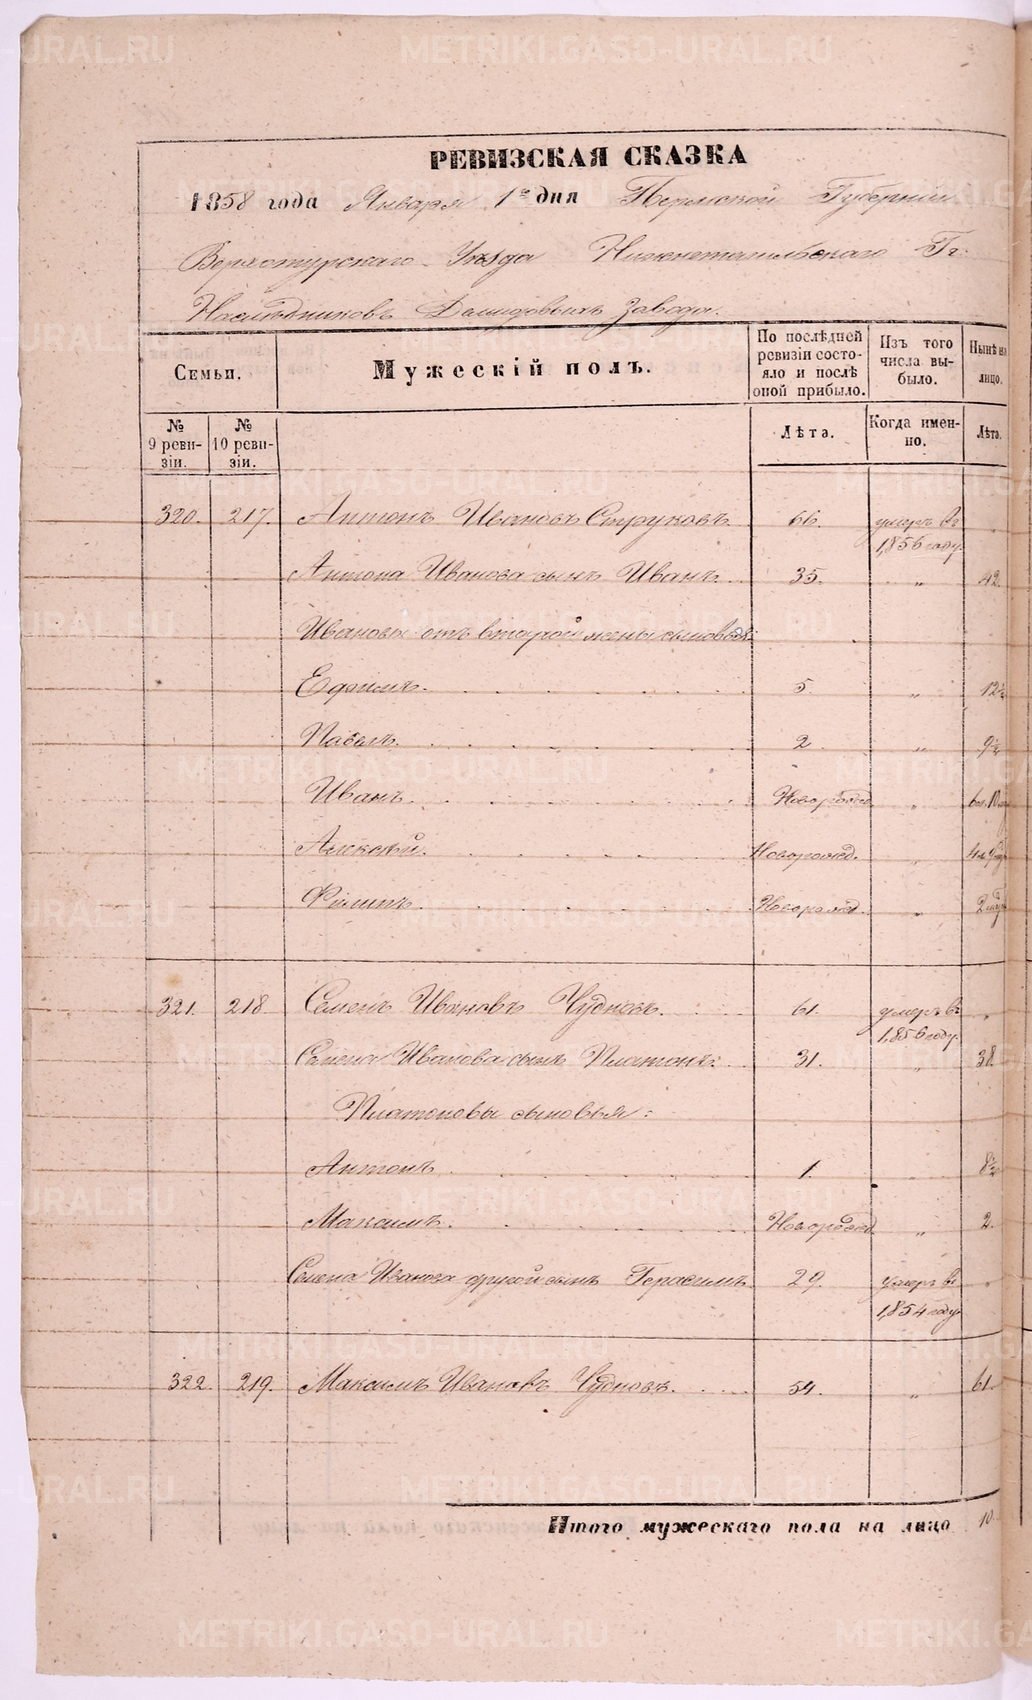 РЕВИЗСКАЯ СКАЗКА
1858 года Января 1го дня Пермской Губернии
Верхотурскаго Уѣзда Нижнетагильскаго Гг:
Наслѣдниковъ Демидовыхъ завода.
Семьи.
Мужескій полъ.
По послѣдней ревизіи состояло и послѣ оной прибыло.
Изъ того числа выбыло.
Нынѣ на лицо.
№ 9 ревизіи.
№ 10 ревизіи.
Лѣта.
Когда именно.
Лѣта.
320. 217. Антонъ Ивановъ Струковъ 66. умеръ въ 1,856 году.
Антона Иванова сынъ Иванъ 35. „ 42.
Ивановы отъ второй жены сыновья:
Ефимъ. 5 „ 12½
Павелъ. 2 „ 9½
Иванъ. Новорожд. „
Алексѣй. Новорожд. „
Филипъ. Новорожд. „
321. 218 Семенъ Ивановъ Чудновъ. 61. умеръ въ 1,856 году. „
Семена Иванова сынъ Платонъ. 31. „ 38.
Платоновы сыновья:
Антонъ 1. „ 8½
Максимъ. Новорожд. „ 2.
Семена Иванова другой сынъ Герасимъ 29. умеръ въ 1,854 году „
322. 219. Максимъ Ивановъ Чудновъ. 54. „ 61.
Итого мужескаго пола на лицо 10.
METRIKI.GASO-URAL.RU